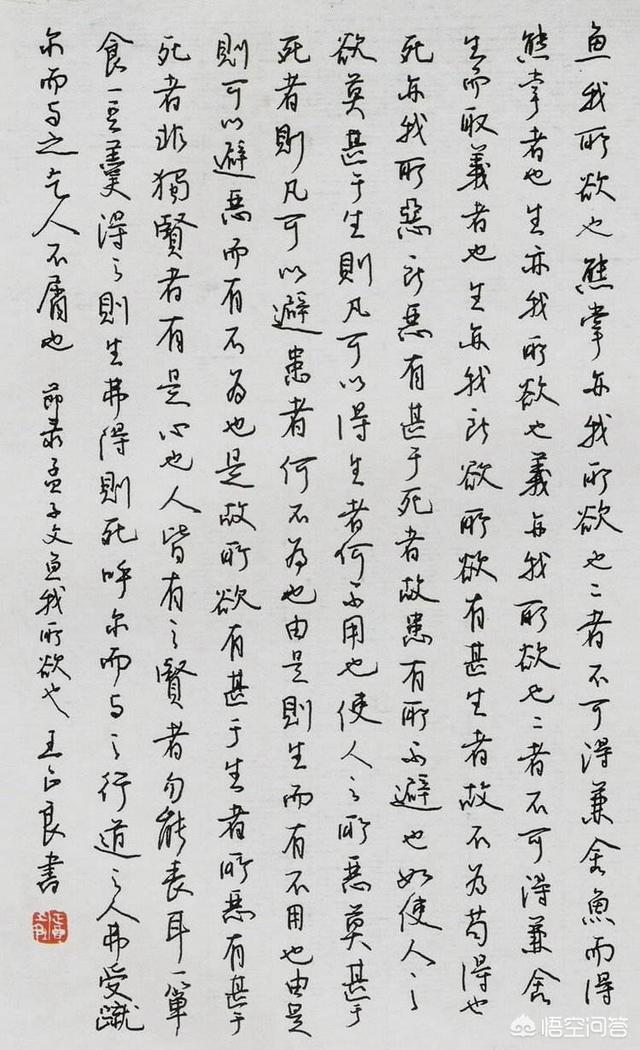 魚我所欲也熊掌亦我所欲也二者不可得兼舍魚而得
熊掌者也生亦我所欲也義亦我所欲也二者不可得兼舍
生而取義者也生亦我所欲所欲有甚生者故不為苟得也
死亦我所惡所惡有甚于死者故患有所不避也如使人之
欲莫甚于生則凡可以得生者何不用也使人之所惡莫甚于
死者則凡可以避患者何不為也由是則生而有不用也由是
則可以避惡而有不為也是故所欲有甚于生者所惡有甚于
死者非獨賢者有是心也人皆有之賢者勿能喪耳一簞
食一豆羹得之則生弗得則死呼尔而与之行道之人弗受蹴
尔而与之乞人不屑也 節录孟子文魚我所欲也 王正良書
悟空问答